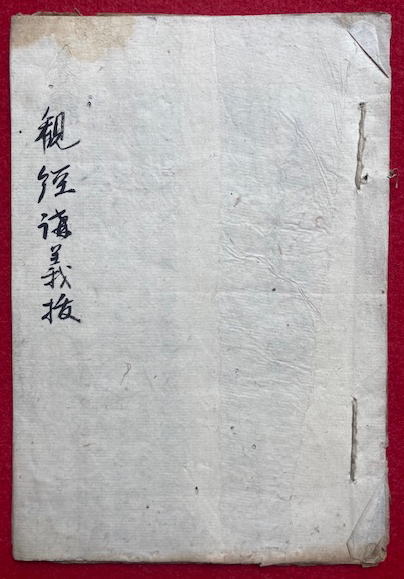 観経講義抜